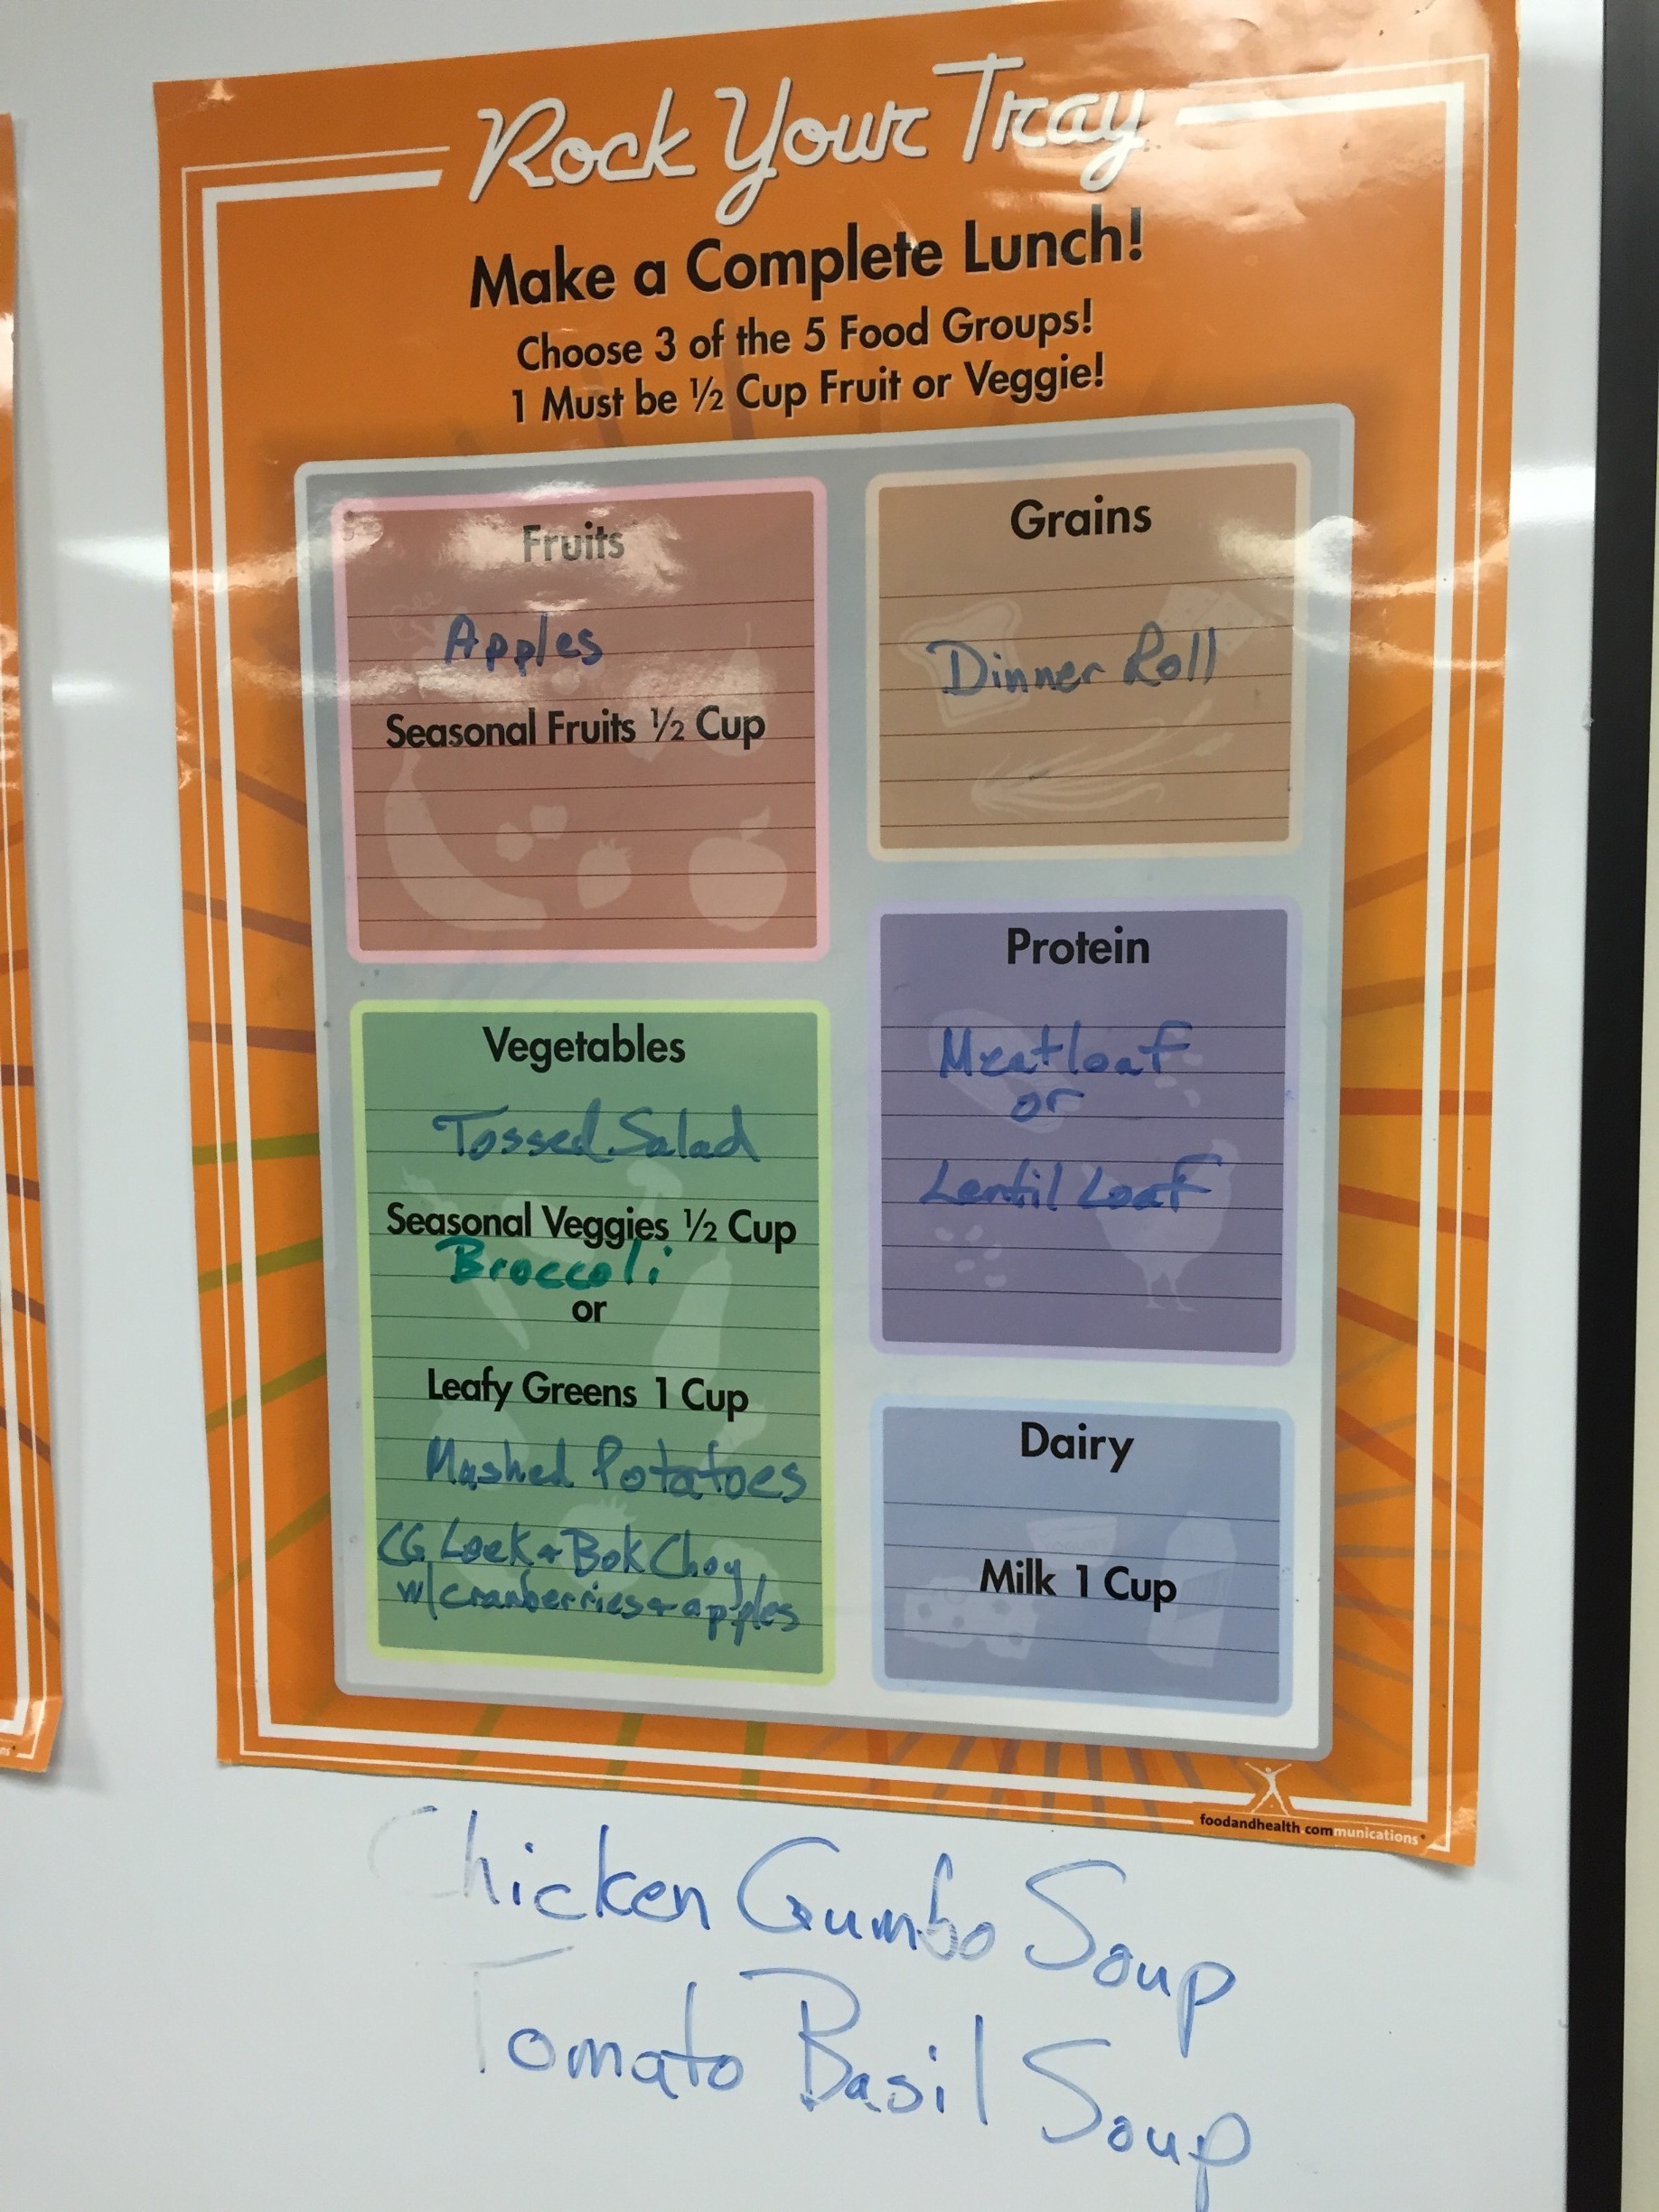 Rock Your Tray
Make a Complete Lunch!
Choose 3 of the 5 Food Groups!
1 Must be ½ Cup Fruit or Veggie!
Fruits
Apples
Seasonal Fruits ½ Cup
Grains
Dinner Roll
Vegetables
Tossed Salad
Seasonal Veggies ½ Cup
Broccoli
or
Leafy Greens 1 Cup
Mashed Potatoes
CG Leek + Bok Choy
w/cranberries + apples
Protein
Meatloaf
or
Lentil Loaf
Dairy
Milk 1 Cup
foodandhealth communications
Chicken Gumbo Soup
Tomato Basil Soup